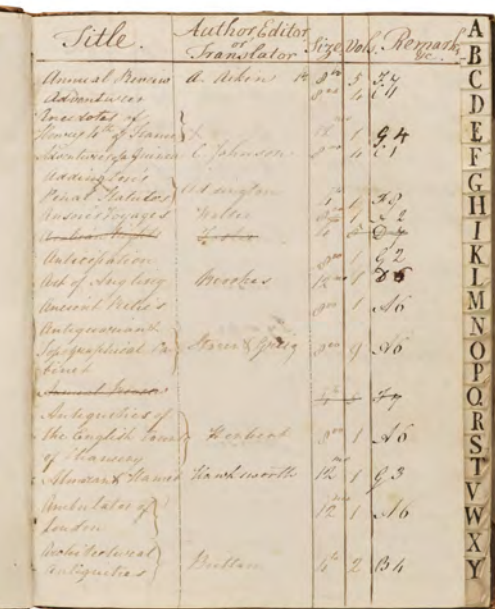 Title. Author Editor or Translator Size Vols. Remarks &c.
Annual Review A. Aikin 8vo 5 F.7
Adventurer 8vo 4 C 4
Anecdotes of
Henry 4th of France 12mo 1 G 4
Adventures of a Guinea C. Johnson 8vo 4 C 1
Addington's
Penal Statutes Addington 4to 1 F 9
Anson's Voyages Walter 1 2
Arabian Nights Foster 4 5 D 7
Anticipation 8vo 1 G 2
Art of Angling Brookes 12mo 1 D 6
Ancient 8vo 1 A6
Antiquarian &
Topographical Ca-
binet Storer & Greig 8vo 9 A6
Annual Review F 7
Antiquities of
the English
of Chancery 8vo 1 A6
Almoran & Hamet Hawkesworth 12mo 1 G 3
Ambulator of
London 12mo 1 A6
Architectural
Antiquities Britton 4to 2 B4
A
B
C
D
E
F
G
H
I
K
L
M
N
O
P
Q
R
S
T
V
W
X
Y